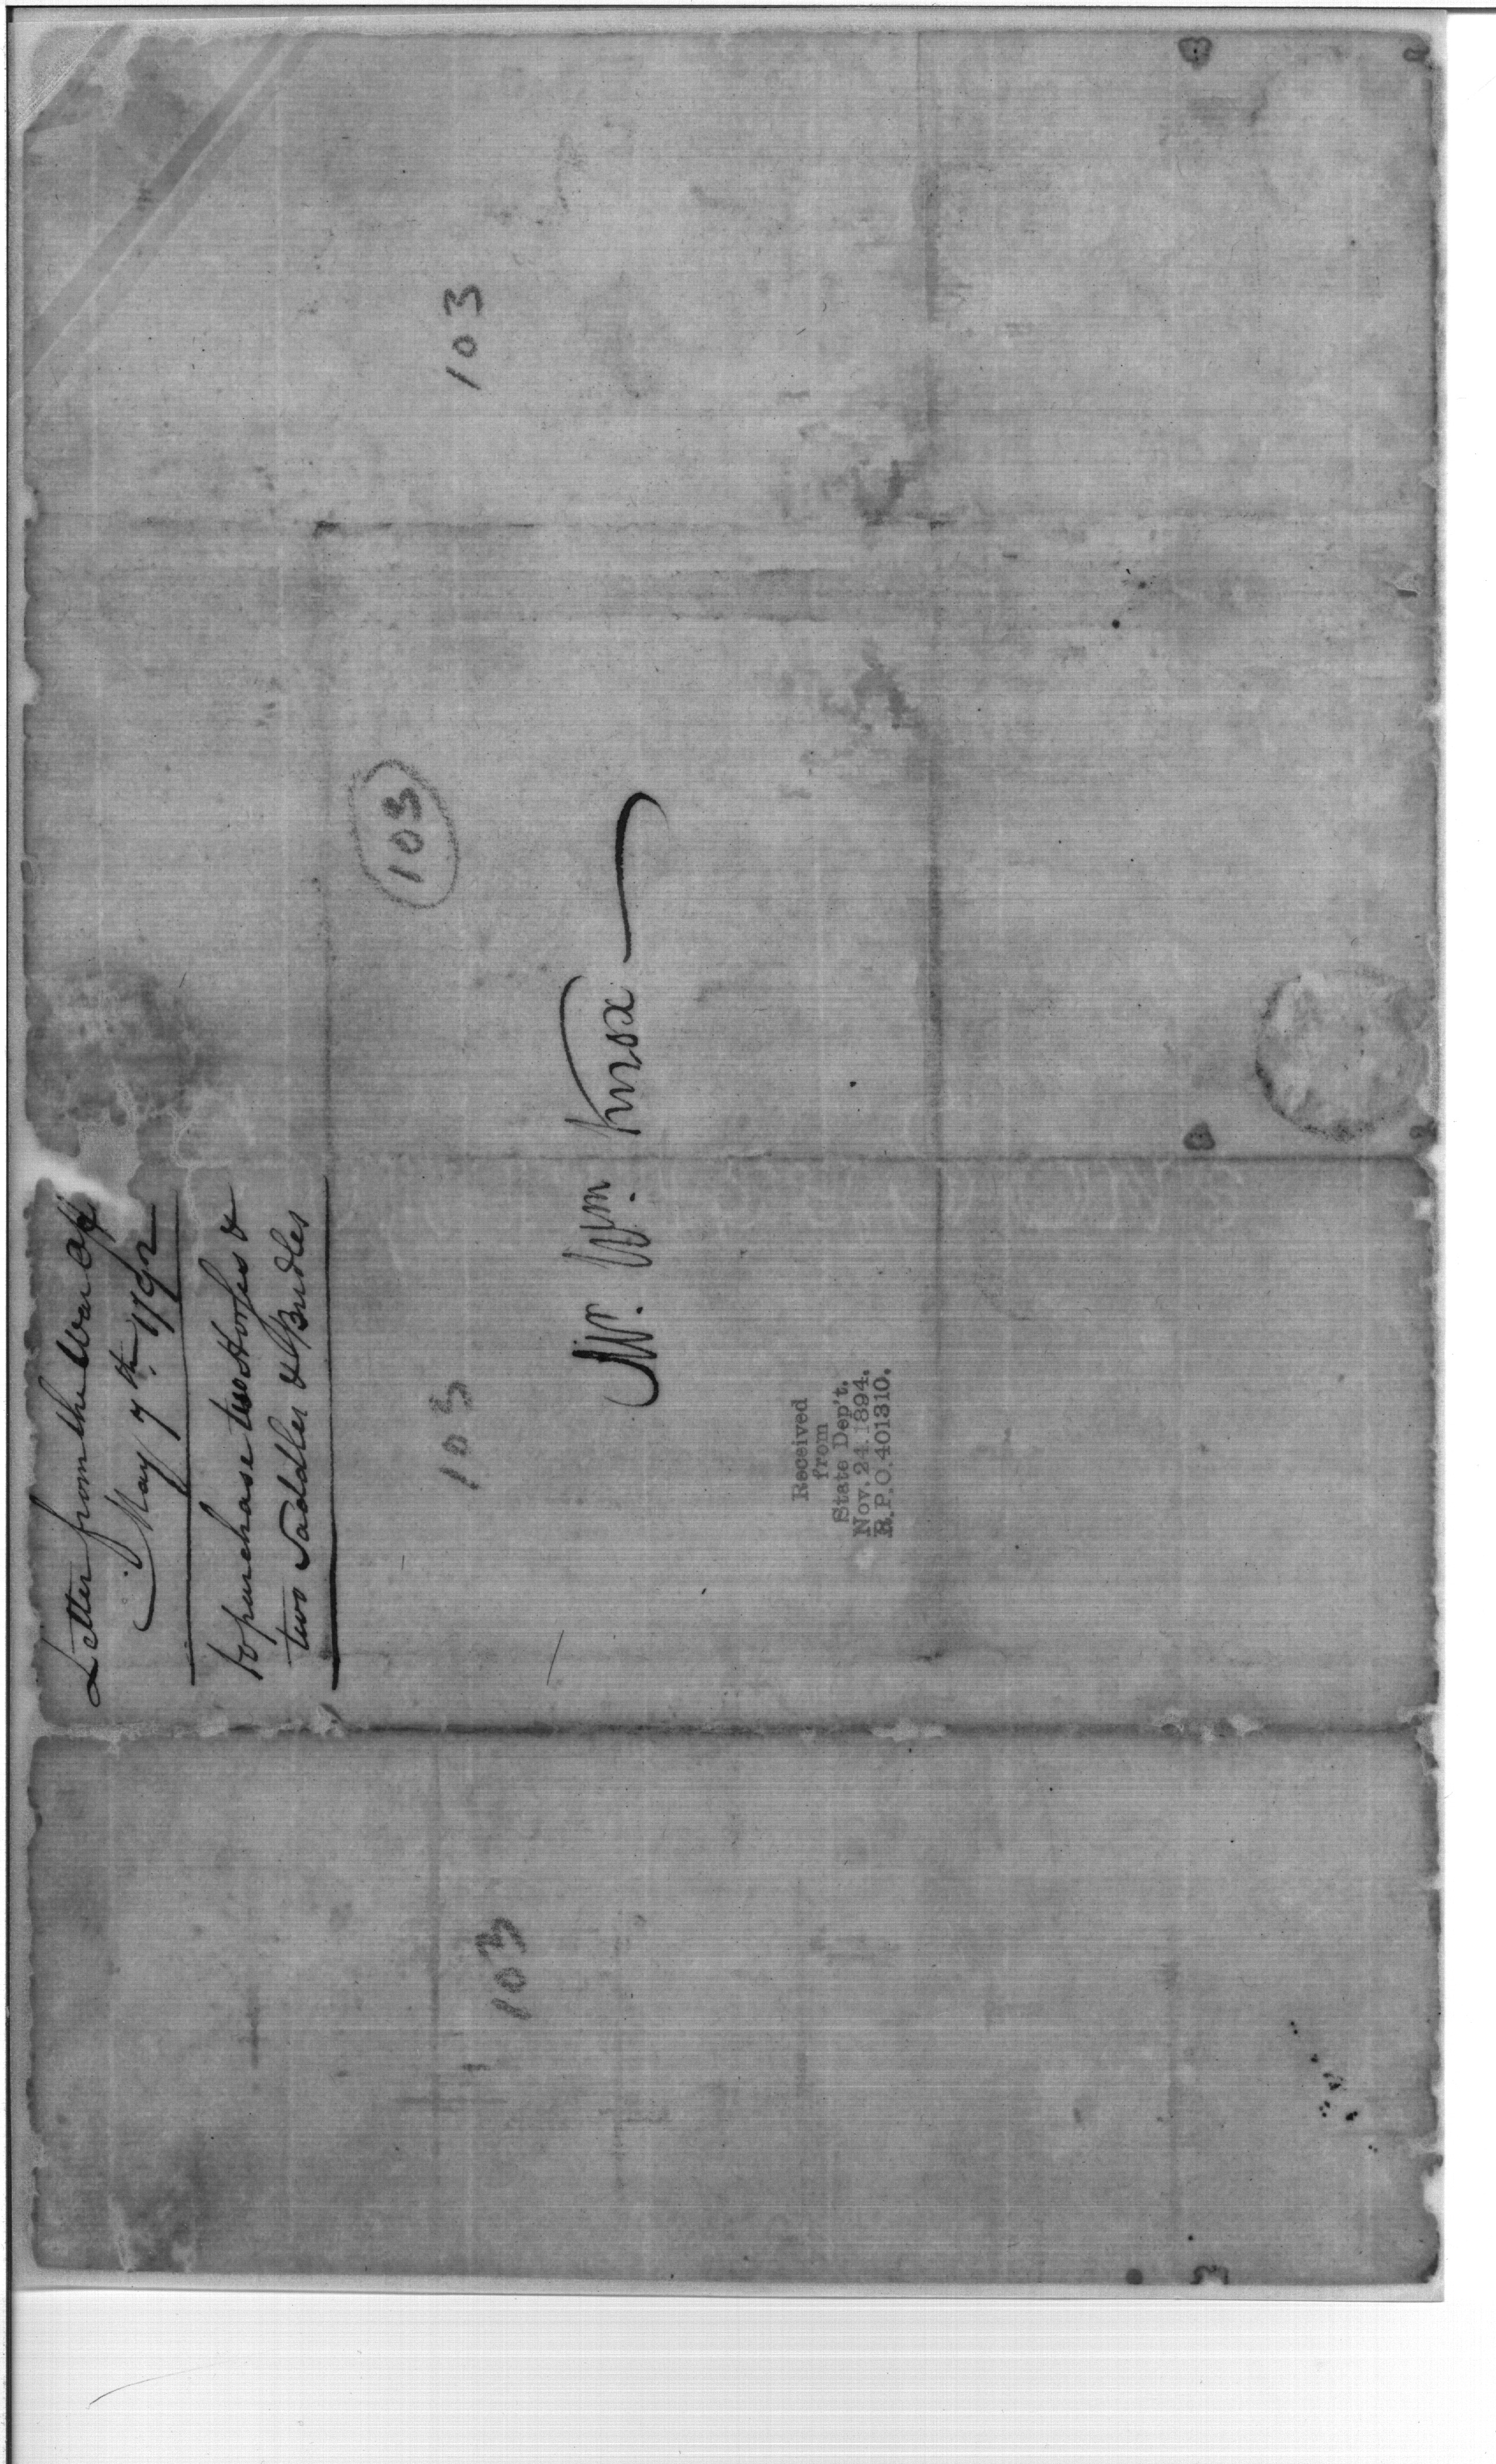 Letter from the War Off
May 7th. 1792
to purchase two Horses &
two Saddles & Bridles
103
103
103
103
Mr. Wm. Knox
Received
from
State Dep't.
Nov. 24. 1894.
R.P.O. 401310.